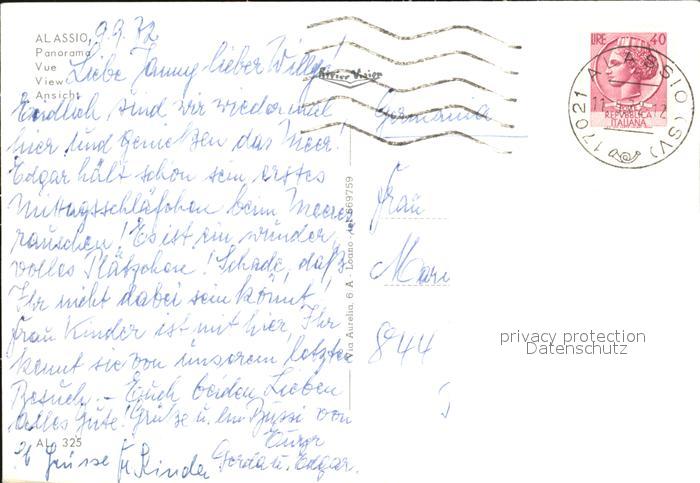 ALASSIO, 9.9.72
Panorama
Vue
View
Ansicht
Liebe Fanny lieber Willy!
Endlich sind wir wieder mal
hier und genießen das Meer!
Edgar hält schon sein erstes
Mittagsschläfchen beim Meeres
rauschen! Es ist ein wunder,
volles Plätzchen! Schade, daß
Ihr nicht dabei sein könnt!
Frau Kinder ist mit hier, Ihr
kennt sie von unserem letzten
Besuch. – Euch beiden Lieben
alles Gute! Grüße u. ein Bussi von
Eurer
Gerda u. Edgar.
AL 325
Grüsse Fr Kinder
Via Aurelia, 6 A - Loano - tel. 669759
Germania
Frau
Mari
844
LIRE 40
REPVBBLICA
ITALIANA
17021 ALASSIO (SV)
privacy protection
Datenschutz